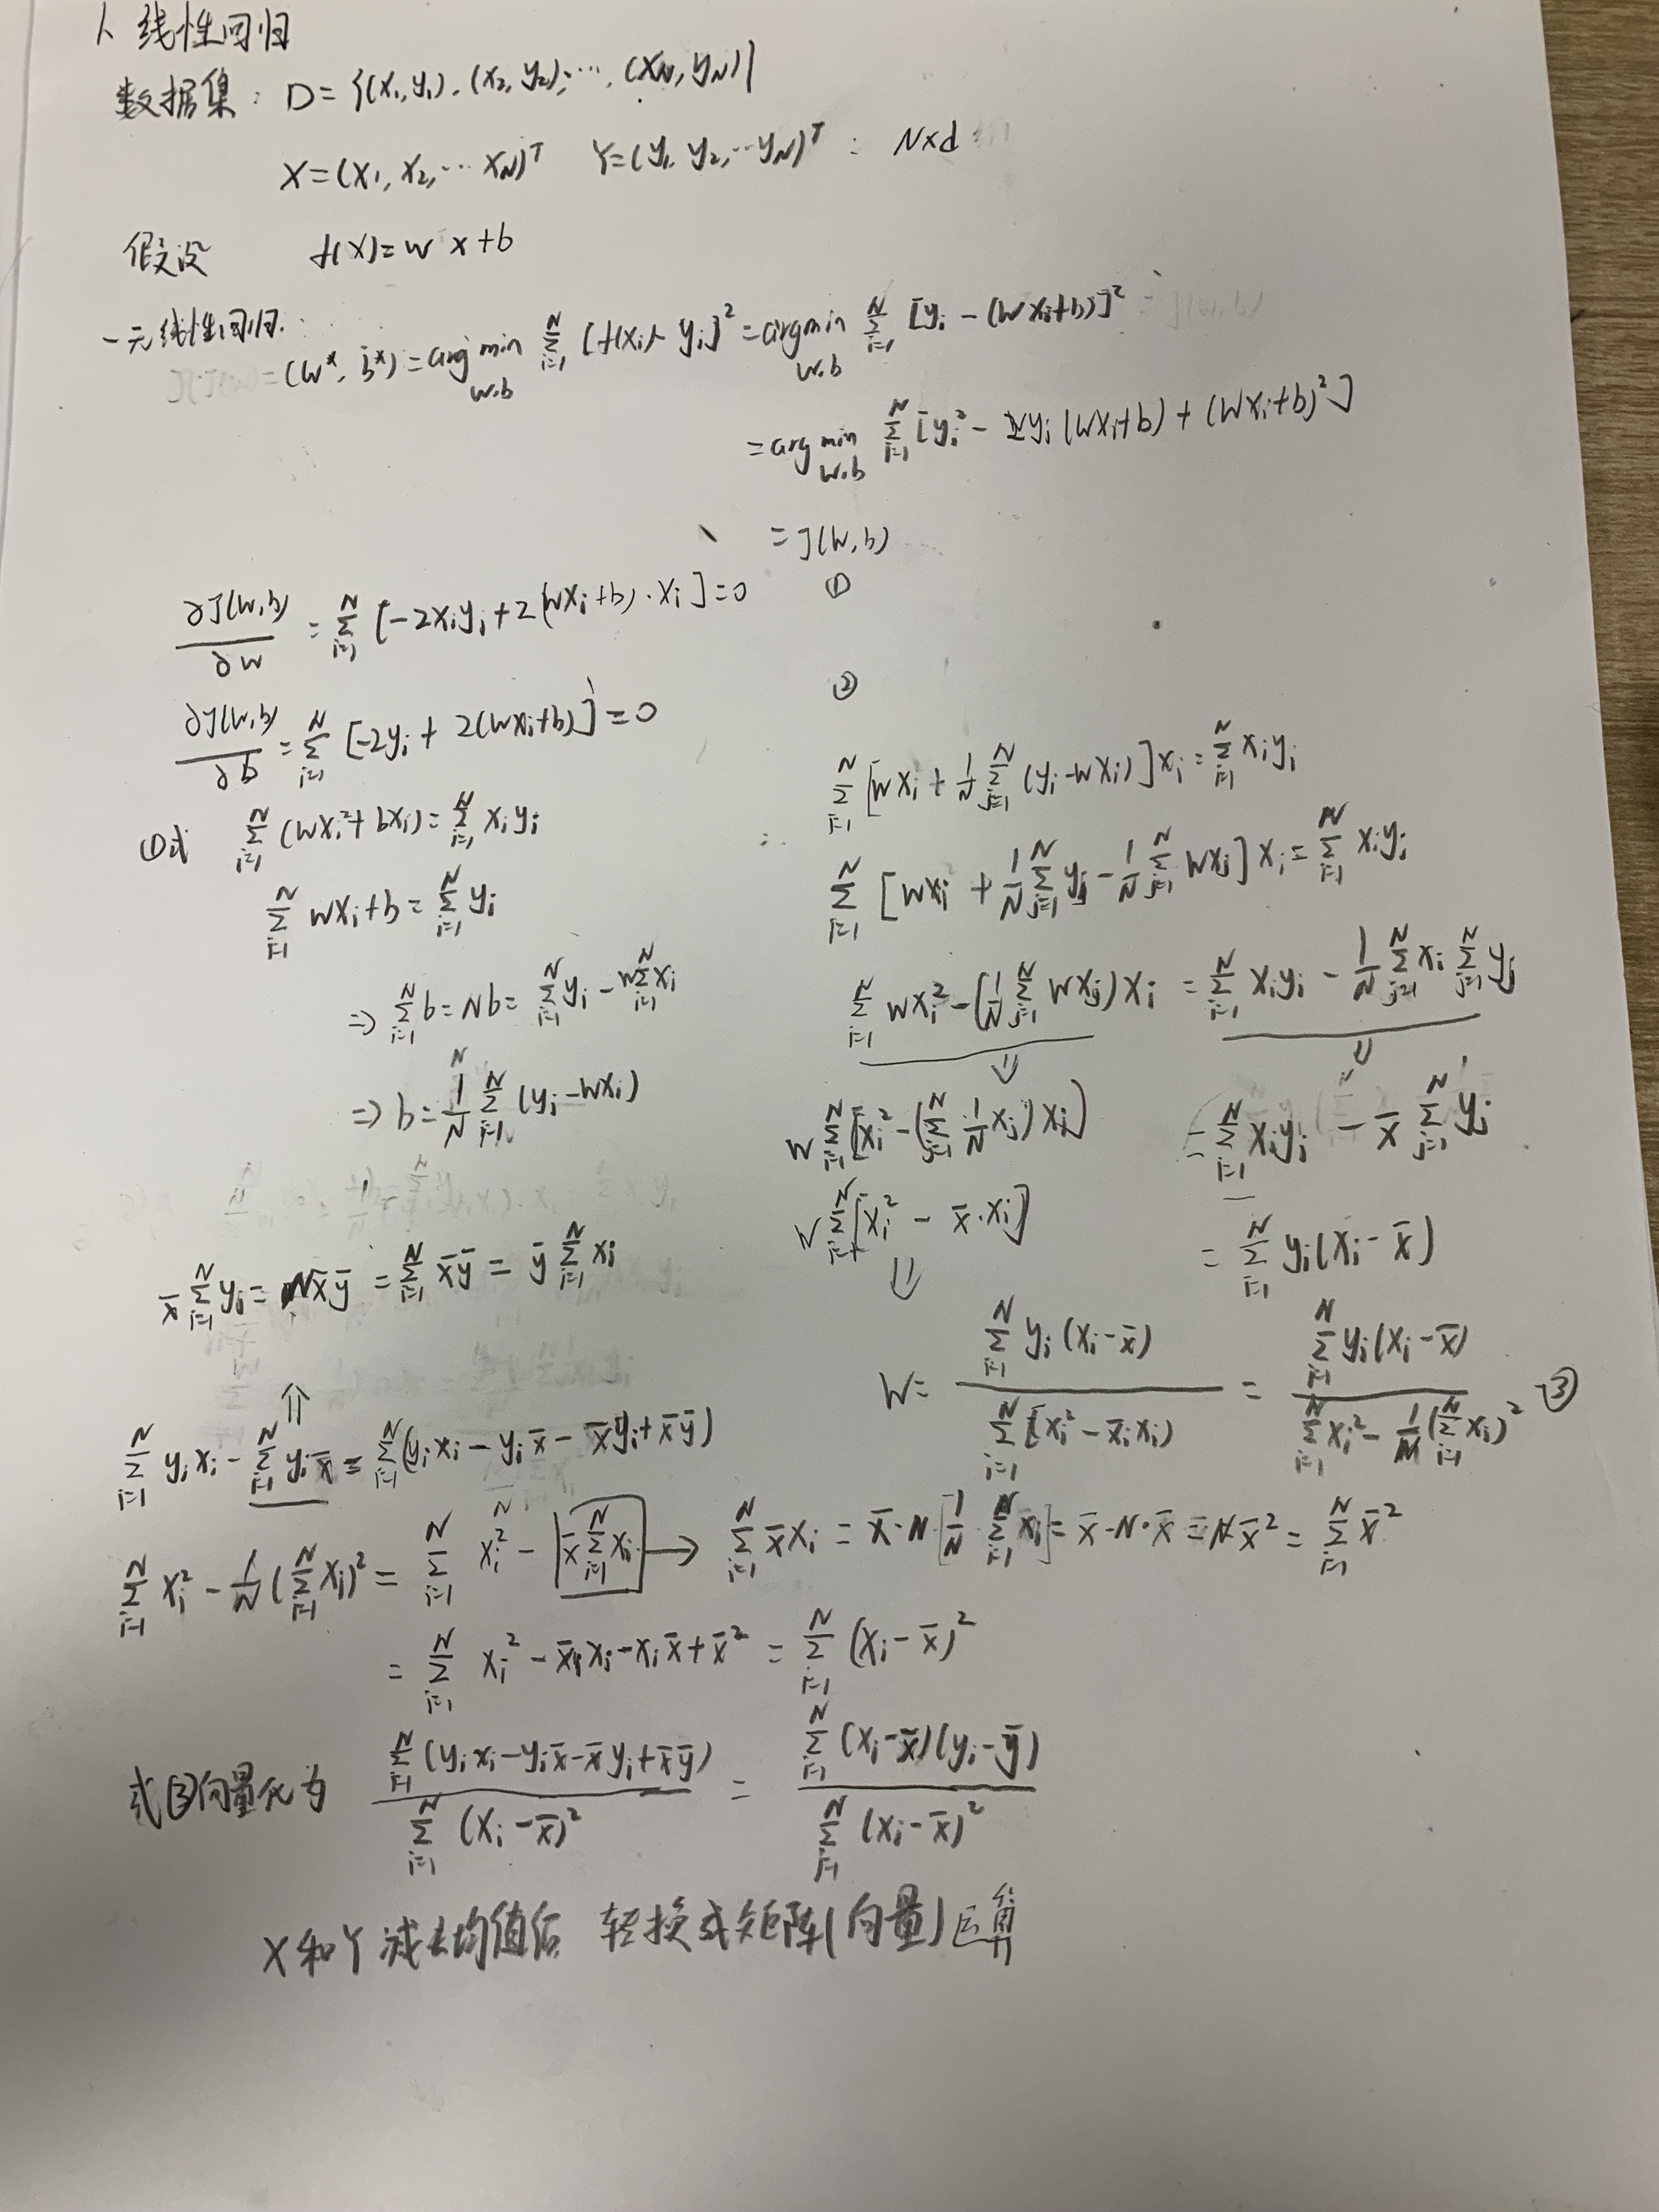 1、线性回归
数据集: D={(x₁,y₁),(x₂,y₂),…,(x_N,y_N)}
X=(x₁,x₂,…x_N)ᵀ Y=(y₁,y₂,…y_N)ᵀ : N×d
假设 f(x)=w x+b
一元线性回归:
(w*, b*)=arg min_{w.b} Σ_{i=1}^N [f(xᵢ)-yᵢ]²=arg min_{w.b} Σ_{i=1}^N [yᵢ-(wxᵢ+b)]²
=arg min_{w.b} Σ_{i=1}^N [yᵢ²-2yᵢ(wxᵢ+b)+(wxᵢ+b)²]
=J(w,b)
∂J(w,b)/∂w = Σ_{i=1}^N [-2xᵢyᵢ+2(wxᵢ+b)·xᵢ]=0 ①
∂J(w,b)/∂b = Σ_{i=1}^N [-2yᵢ+2(wxᵢ+b)]=0 ②
①式 Σ_{i=1}^N (wxᵢ²+bxᵢ)=Σ_{i=1}^N xᵢyᵢ
Σ_{i=1}^N wxᵢ+b=Σ_{i=1}^N yᵢ
⇒ Σ_{i=1}^N b=Nb=Σ_{i=1}^N yᵢ-wΣ_{i=1}^N xᵢ
⇒ b=1/N Σ_{i=1}^N (yᵢ-wxᵢ)
Σ_{i=1}^N [wxᵢ+1/N Σ_{j=1}^N (yᵢ-wxᵢ)]xᵢ=Σ_{i=1}^N xᵢyᵢ
Σ_{i=1}^N [wxᵢ+1/N Σ_{j=1}^N yⱼ-1/N Σ_{j=1}^N wxⱼ]xᵢ=Σ_{i=1}^N xᵢyᵢ
Σ_{i=1}^N wxᵢ²-(1/N Σ_{j=1}^N wxⱼ)xᵢ = Σ_{i=1}^N xᵢyᵢ-1/N Σ_{j=1}^N xᵢ Σ_{j=1}^N yⱼ
⇓ ⇓
w Σ_{i=1}^N [xᵢ²-(Σ_{j=1}^N 1/N xⱼ)xᵢ] =Σ_{i=1}^N xᵢyᵢ-x̄ Σ_{j=1}^N yⱼ
w Σ_{i=1}^N [xᵢ²-x̄·xᵢ] =Σ_{i=1}^N yᵢ(xᵢ-x̄)
⇓
w= Σ_{i=1}^N yᵢ(xᵢ-x̄) / Σ_{i=1}^N [xᵢ²-x̄ᵢxᵢ] = Σ_{i=1}^N yᵢ(xᵢ-x̄) / Σ_{i=1}^N xᵢ²-1/N(Σ_{i=1}^N xᵢ)² -③
x̄ Σ_{i=1}^N yᵢ=Nx̄ȳ=Σ_{i=1}^N x̄ȳ=ȳ Σ_{i=1}^N xᵢ
⇑
Σ_{i=1}^N yᵢxᵢ-Σ_{i=1}^N yᵢx̄=Σ_{i=1}^N (yᵢxᵢ-yᵢx̄-x̄yᵢ+x̄ȳ)
Σ_{i=1}^N xᵢ²-1/N(Σ_{i=1}^N xᵢ)²=Σ_{i=1}^N xᵢ²-x̄ Σ_{i=1}^N xᵢ → Σ_{i=1}^N x̄xᵢ=x̄·N[1/N·Σ_{i=1}^N xᵢ]=x̄·N·x̄=Nx̄²=Σ_{i=1}^N x̄²
=Σ_{i=1}^N xᵢ²-x̄xᵢ-xᵢx̄+x̄²=Σ_{i=1}^N (xᵢ-x̄)²
式③向量化为 Σ_{i=1}^N (yᵢxᵢ-yᵢx̄-x̄yᵢ+x̄ȳ) / Σ_{i=1}^N (xᵢ-x̄)² = Σ_{i=1}^N (xᵢ-x̄)(yᵢ-ȳ) / Σ_{i=1}^N (xᵢ-x̄)²
X和Y减去均值后 转换成矩阵(向量)运算